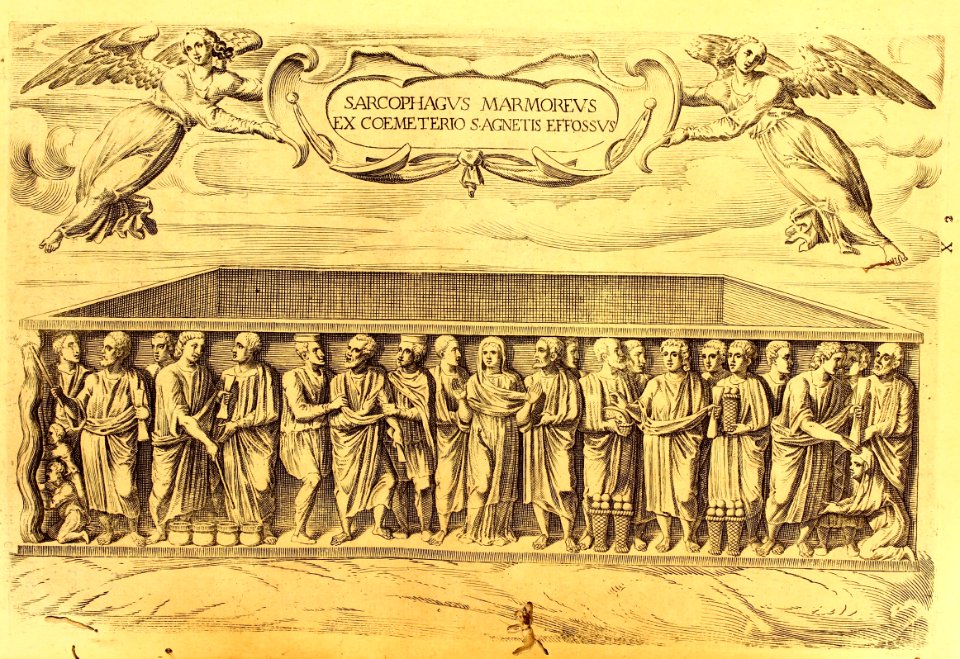 SARCOPHAGVS MARMOREVS
EX COEMETERIO S·AGNETIS EFFOSSVS
X 2